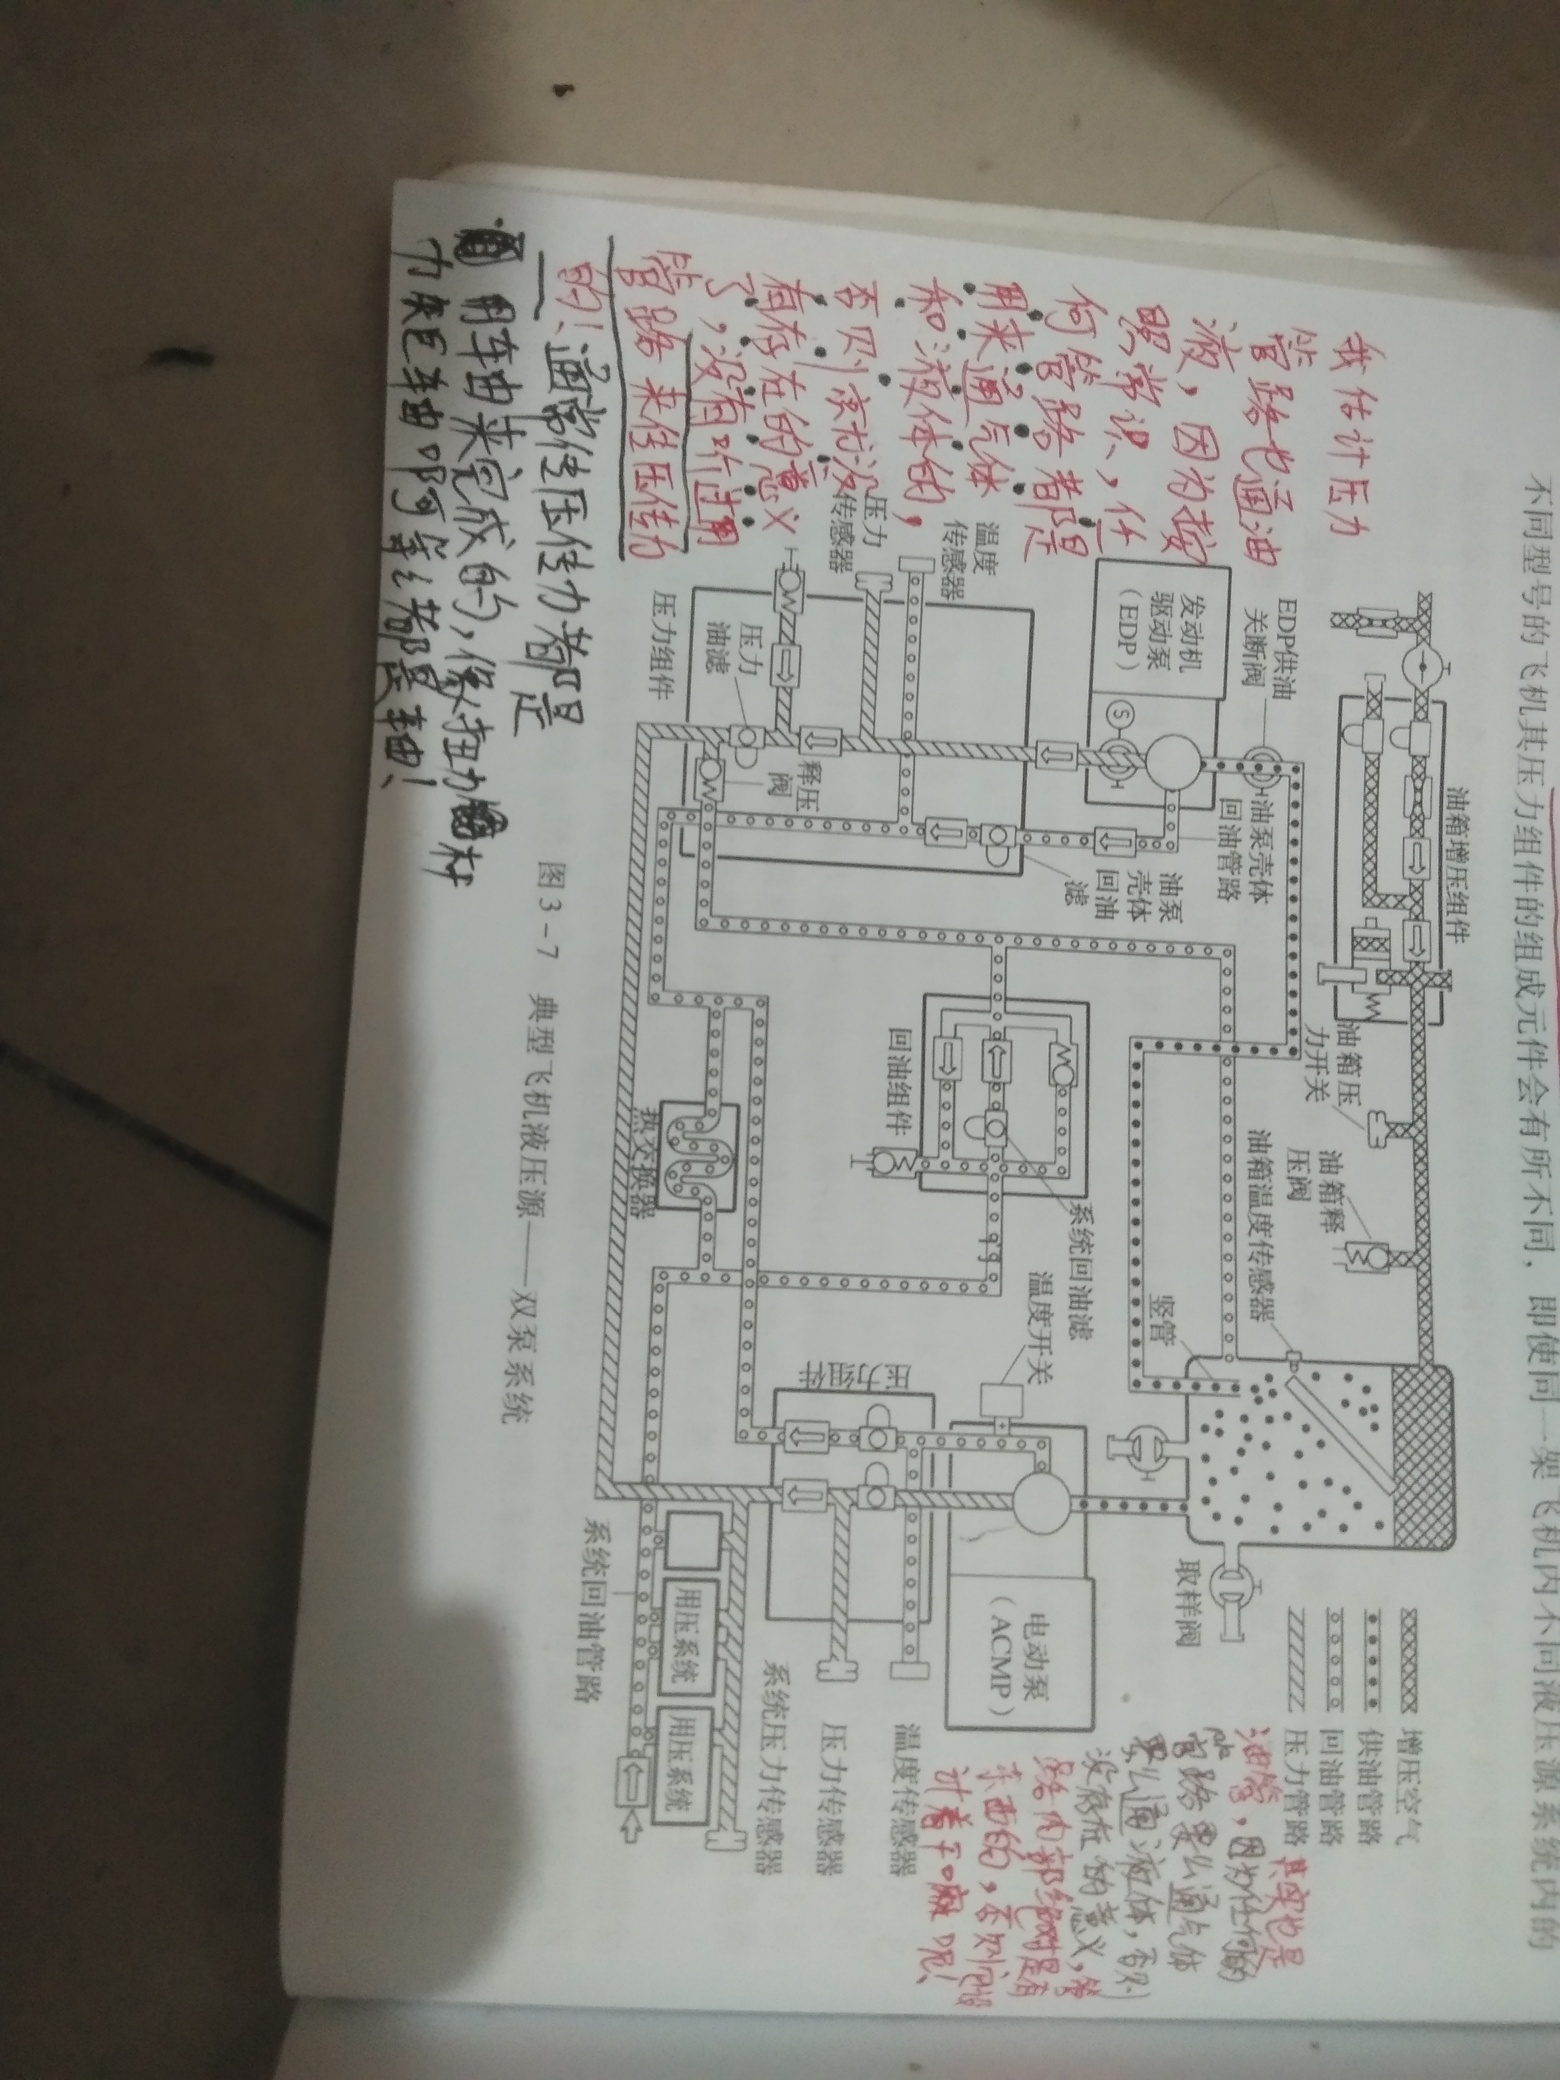 不同型号的飞机其压力组件的组成元件会有所不同，即使同一架飞机内不同液压源系统内的
油箱增压组件
油箱压
力开关
油箱释
压阀
油箱温度传感器
竖管
增压空气
供油管路
回油管路
压力管路
其实也是
油管，因为任何的
管路要么通气体
要么通液体，否则
没存在的意义，管
路内部绝对是有
东西的，否则
干嘛呢！
我估计压力
管路也通油
液，因为按
照常识，任
何管路都是
用来通气体
和液体的，
否则就没
有存在的意义
了，没有听过用
管路来传压传力
的！
通常传压传力都是
用轴来完成的，像扭力
杆
力矩轴啊等等都是轴！
EDP供油
关断阀
发动机
驱动泵
(EDP)
油泵壳体
回油管路
油泵
壳体
回油
滤
温度
传感器
压力
传感器
释压
阀
压力
油滤
压力组件
回油组件
系统回油滤
温度开关
热交换器
压力组件
取样阀
电动泵
(ACMP)
温度传感器
压力传感器
系统压力传感器
用压系统
用压系统
系统回油管路
图3-7 典型飞机液压源——双泵系统